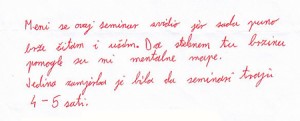 Meni se ovaj seminar svidio jer sada puno
brže čitam i učim. Da steknem tu brzinu
pomogle su mi mentalne mape.
Jedina zamjerka je bila da seminari traju
4-5 sati.